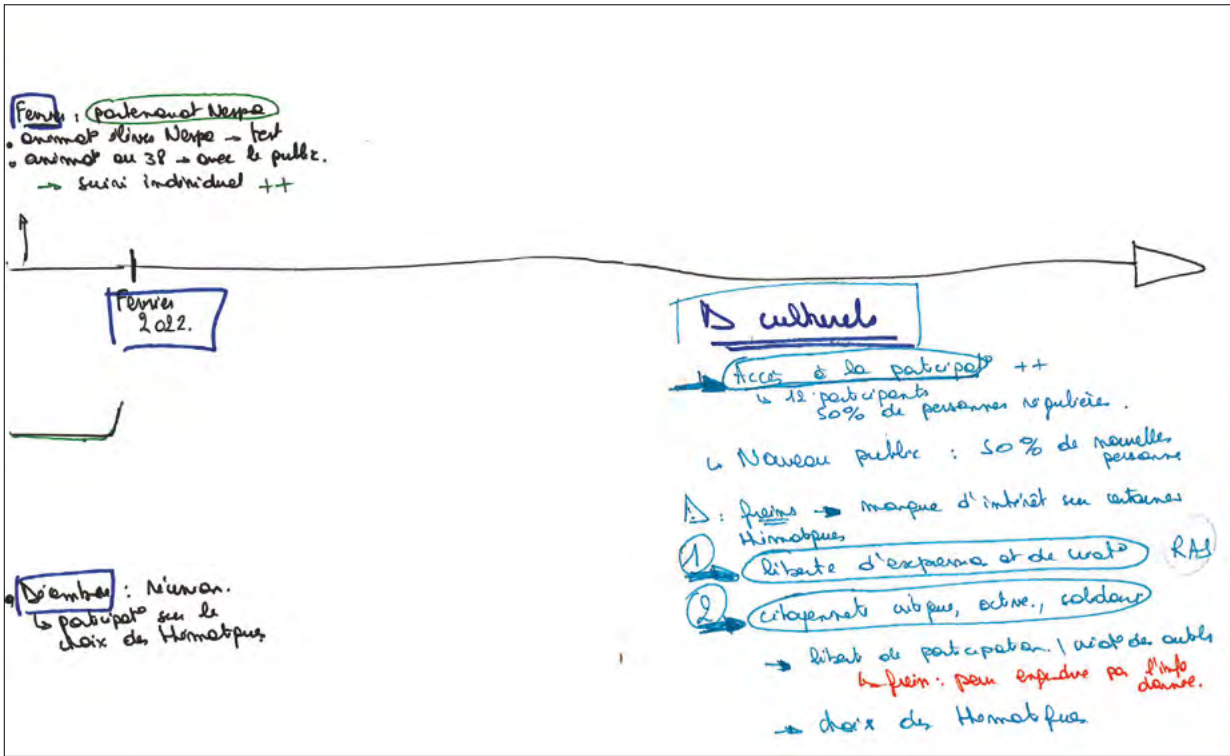 Février : partenariat Nespa
• animat° élèves Nespa → test
• animat° au 38 → avec le public.
→ suivi individuel ++
Février
2022.
• Décembre : réunion.
↳ participat° sur le
choix des thématques
D culturels
→ Accès à la participat° ++
↳ 12 participants
50% de personnes régulières.
↳ Nouveau public : 50% de nouvelles
personne
⚠ : freins → manque d'intérêt sur certaines
thématques
1 → liberté d'expression et de créat° RAS
2 → citoyenneté critique, active, solidaire
→ libert de participation / créat° des outils
↳ frein : peu par l'info
donnée.
→ choix des thématques